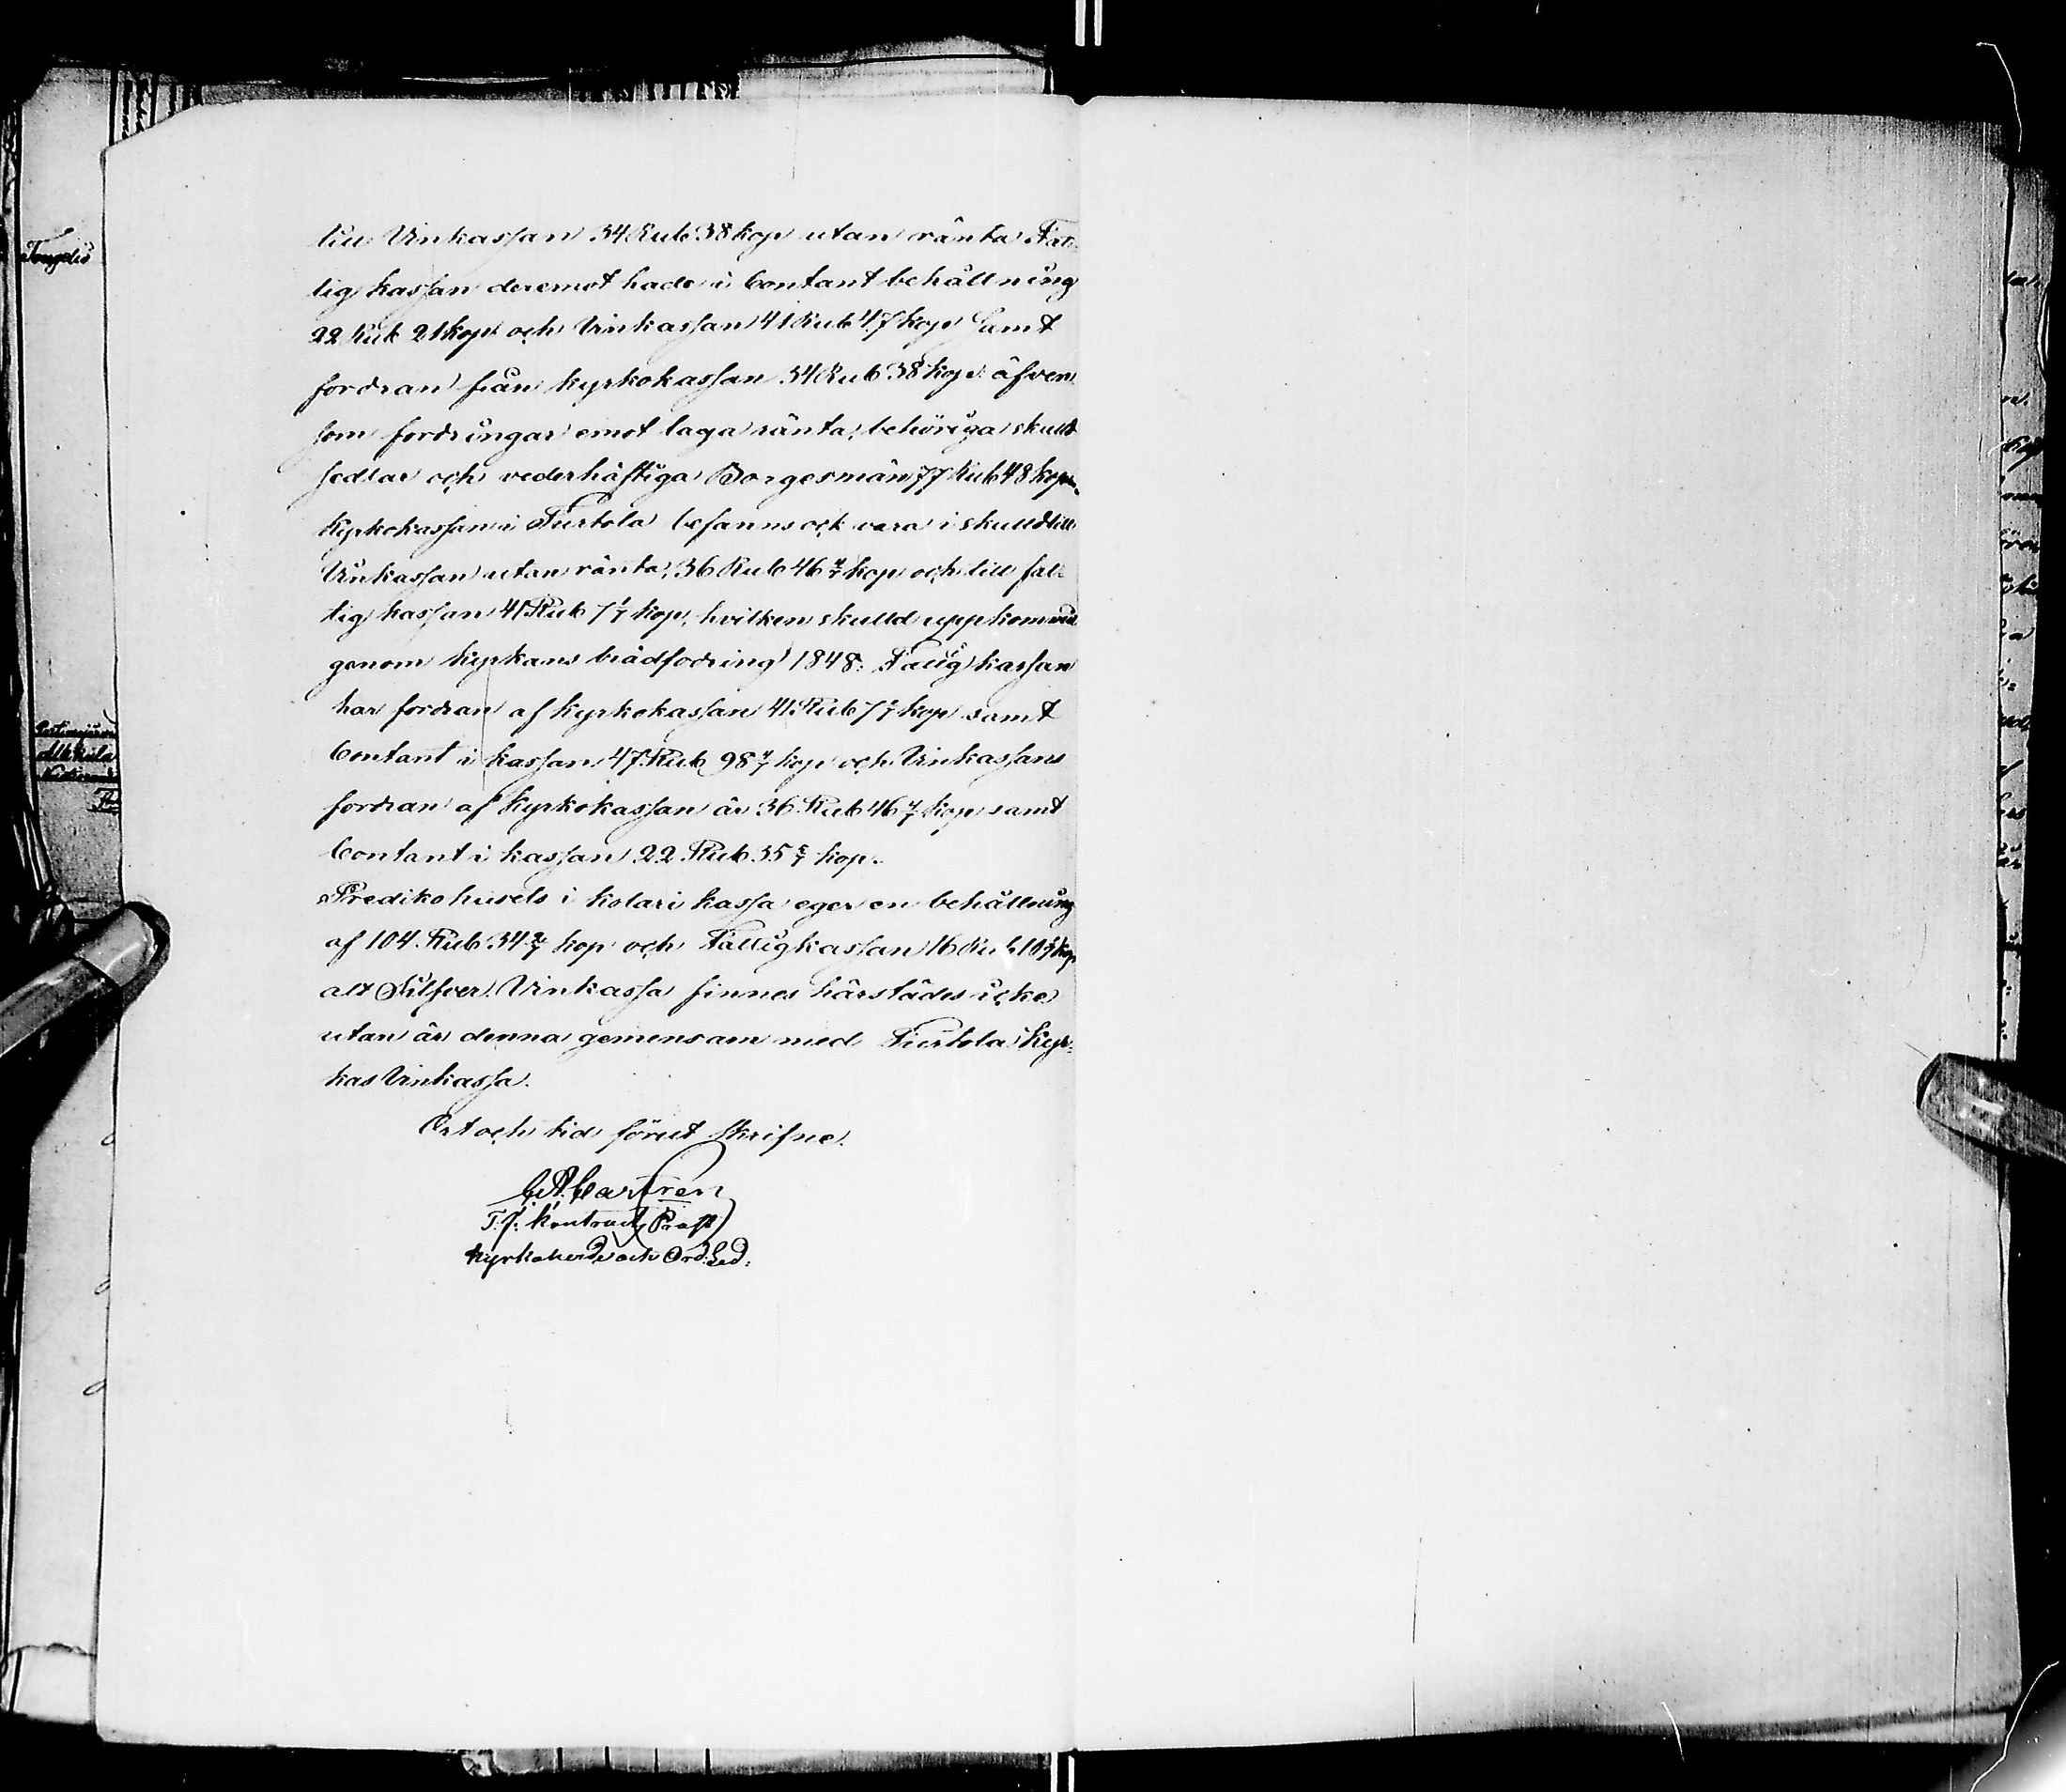 till Vinkassan 34 Rub 38 kop utan ränta. Fat-
tig kassan deremot hade i Contant behållning
22 Rub 21 kop och Vinkassan 41 Rub 47 kop Samt
fordran från kyrkokassan 34 Rub 38 kop. äfven
som fordringar emot laga ränta, behöriga skuld
sedlar och vederhäftiga Borgesmän 77 Rub 48 kop.
Kyrkokassan i Turtola befanns ock vara i skulld till
Vinkassan utan ränta, 36 Rub 46 4/7 kop och till fat-
tig kassan 41 Rub 7 1/7 kop, hvilken skulld uppkommit
genom kyrkans brädfodring 1848. Fattig kassan
har fordran af kyrkokassan 41 Rub 7 1/7 kop samt
Contant i kassan 47 Rub 98 4/7 kop och Vinkassans
fordran af kyrkokassan är 36 Rub 46 4/7 kop samt
Contant i kassan 22 Rub 35 5/7 kop.
Predikohusets i kolari kassa eger en behållning
af 104 Rub 34 2/7 kop och Fattigkassan 16 Rub kop
alt Silfver. Vinkassa finnes härstädes icke
utan är denna gemensam med Turtola Kyr-
kas Vinkassa.
Ort och tid förut skrifne.
C. A. Castren
T. f. Kontracts Prost
Kyrkoherde och Ord. Led.
Tengeliö